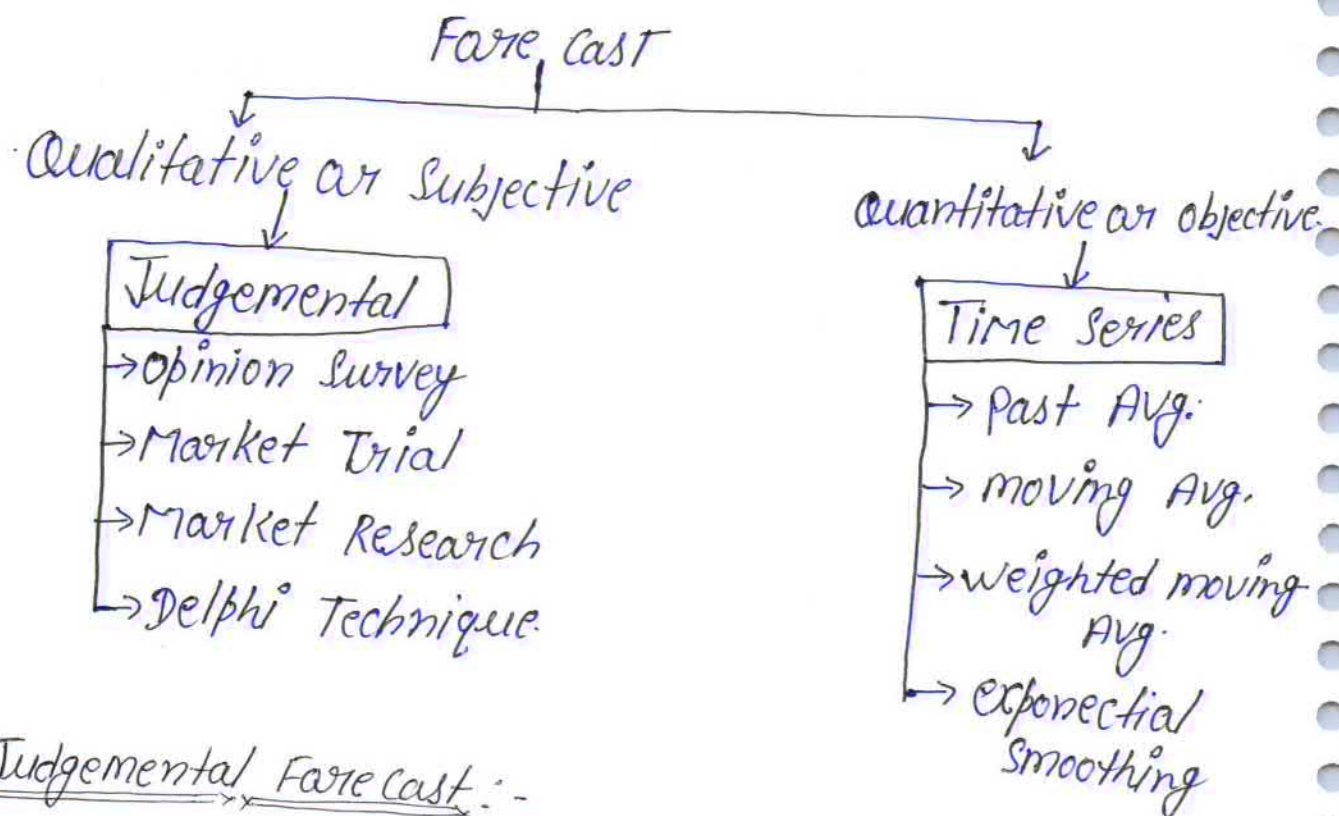 Forecast
Qualitative or Subjective
Judgemental
→ Opinion Survey
→ Market Trial
→ Market Research
→ Delphi Technique.
Quantitative or objective.
Time Series
→ Past Avg.
→ moving Avg.
→ weighted moving
Avg.
→ exponectial
Smoothing
Judgemental Forecast :-